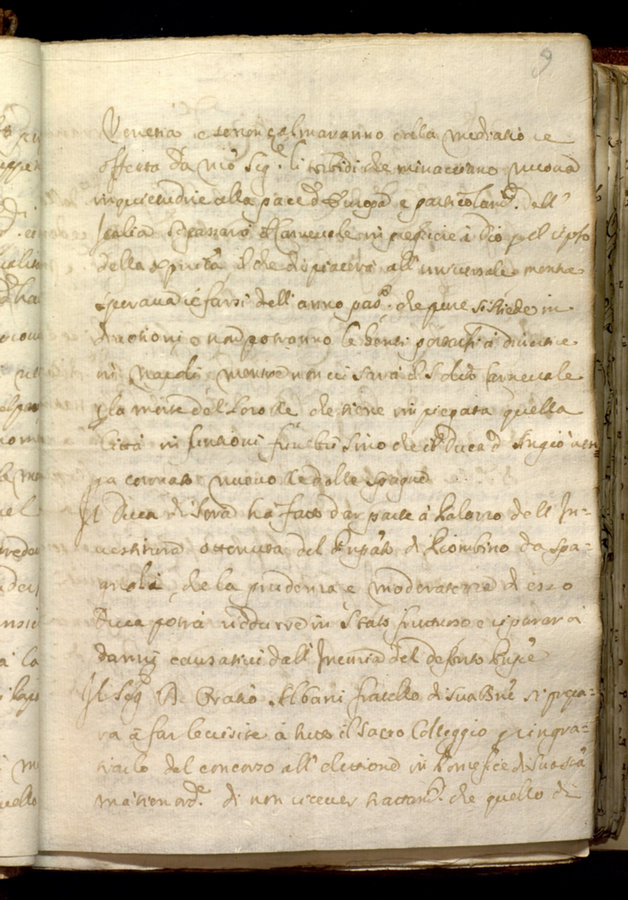 9
Venetia e se non calmaranno colla mediatione
offerta da Nro Sigre li torbidi che minacciano nuova
inquietudine alla pace d'Europa e particolarmte dell'
Italia passarà il Carnevale in
della il che dispiacerà all'universale mentre
sperava rifarsi dell'anno pasto che pure si stiede in
devotioni e non potranno le genti portarsi a divertire
in Napoli mentre non ci sarà il solito Carnevale
p la morte del loro Re che tiene impiegata quella
Città in funtioni funebri sino che il Duca d'Angiò venga
ga coronato nuovo Re delle Spagne
Il Duca di Sora ha fatto dar parte à Palazzo dell'In-
vestitura ottenuta del Prnpato di Piombino da Spa-
gnoli, che la prudenza e moderatezze di esso
Duca potrà riddurre in Stato fruttuoso e riparar a
danni causativi dall' del defonto Prnpe
Il Sigr D. Oratio Albani fratello di Sua Bne si prepa-
ra à far le visite à tutto il Sacro Colleggio p ringra-
tiarlo del concorso all'elettione in Pontefice di Sua Stà
di non ricever trattamto che quello di